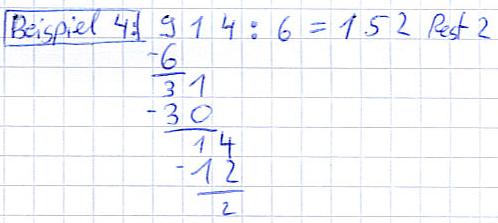 Beispiel 4: 914 : 6 = 152 Rest 2
-6
31
-30
14
-12
2